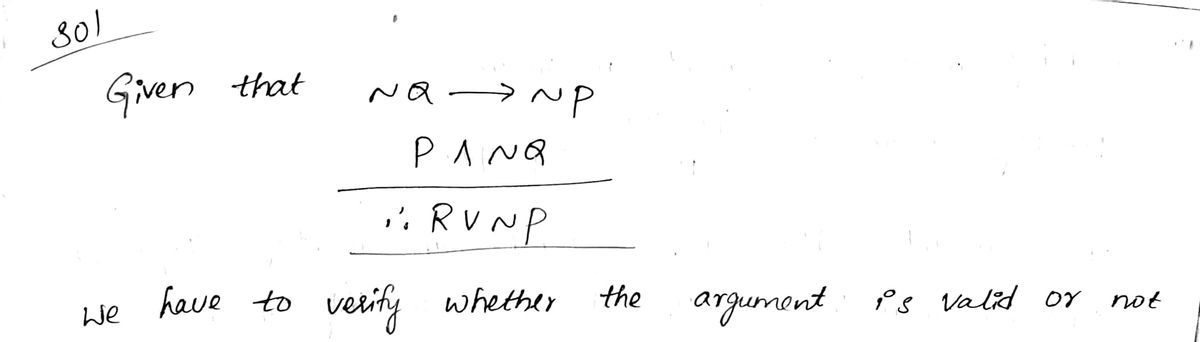 Sol
Given that ~Q → ~P
P ∧ ~Q
∴ R ∨ ~P
We have to verify whether the argument is valid or not